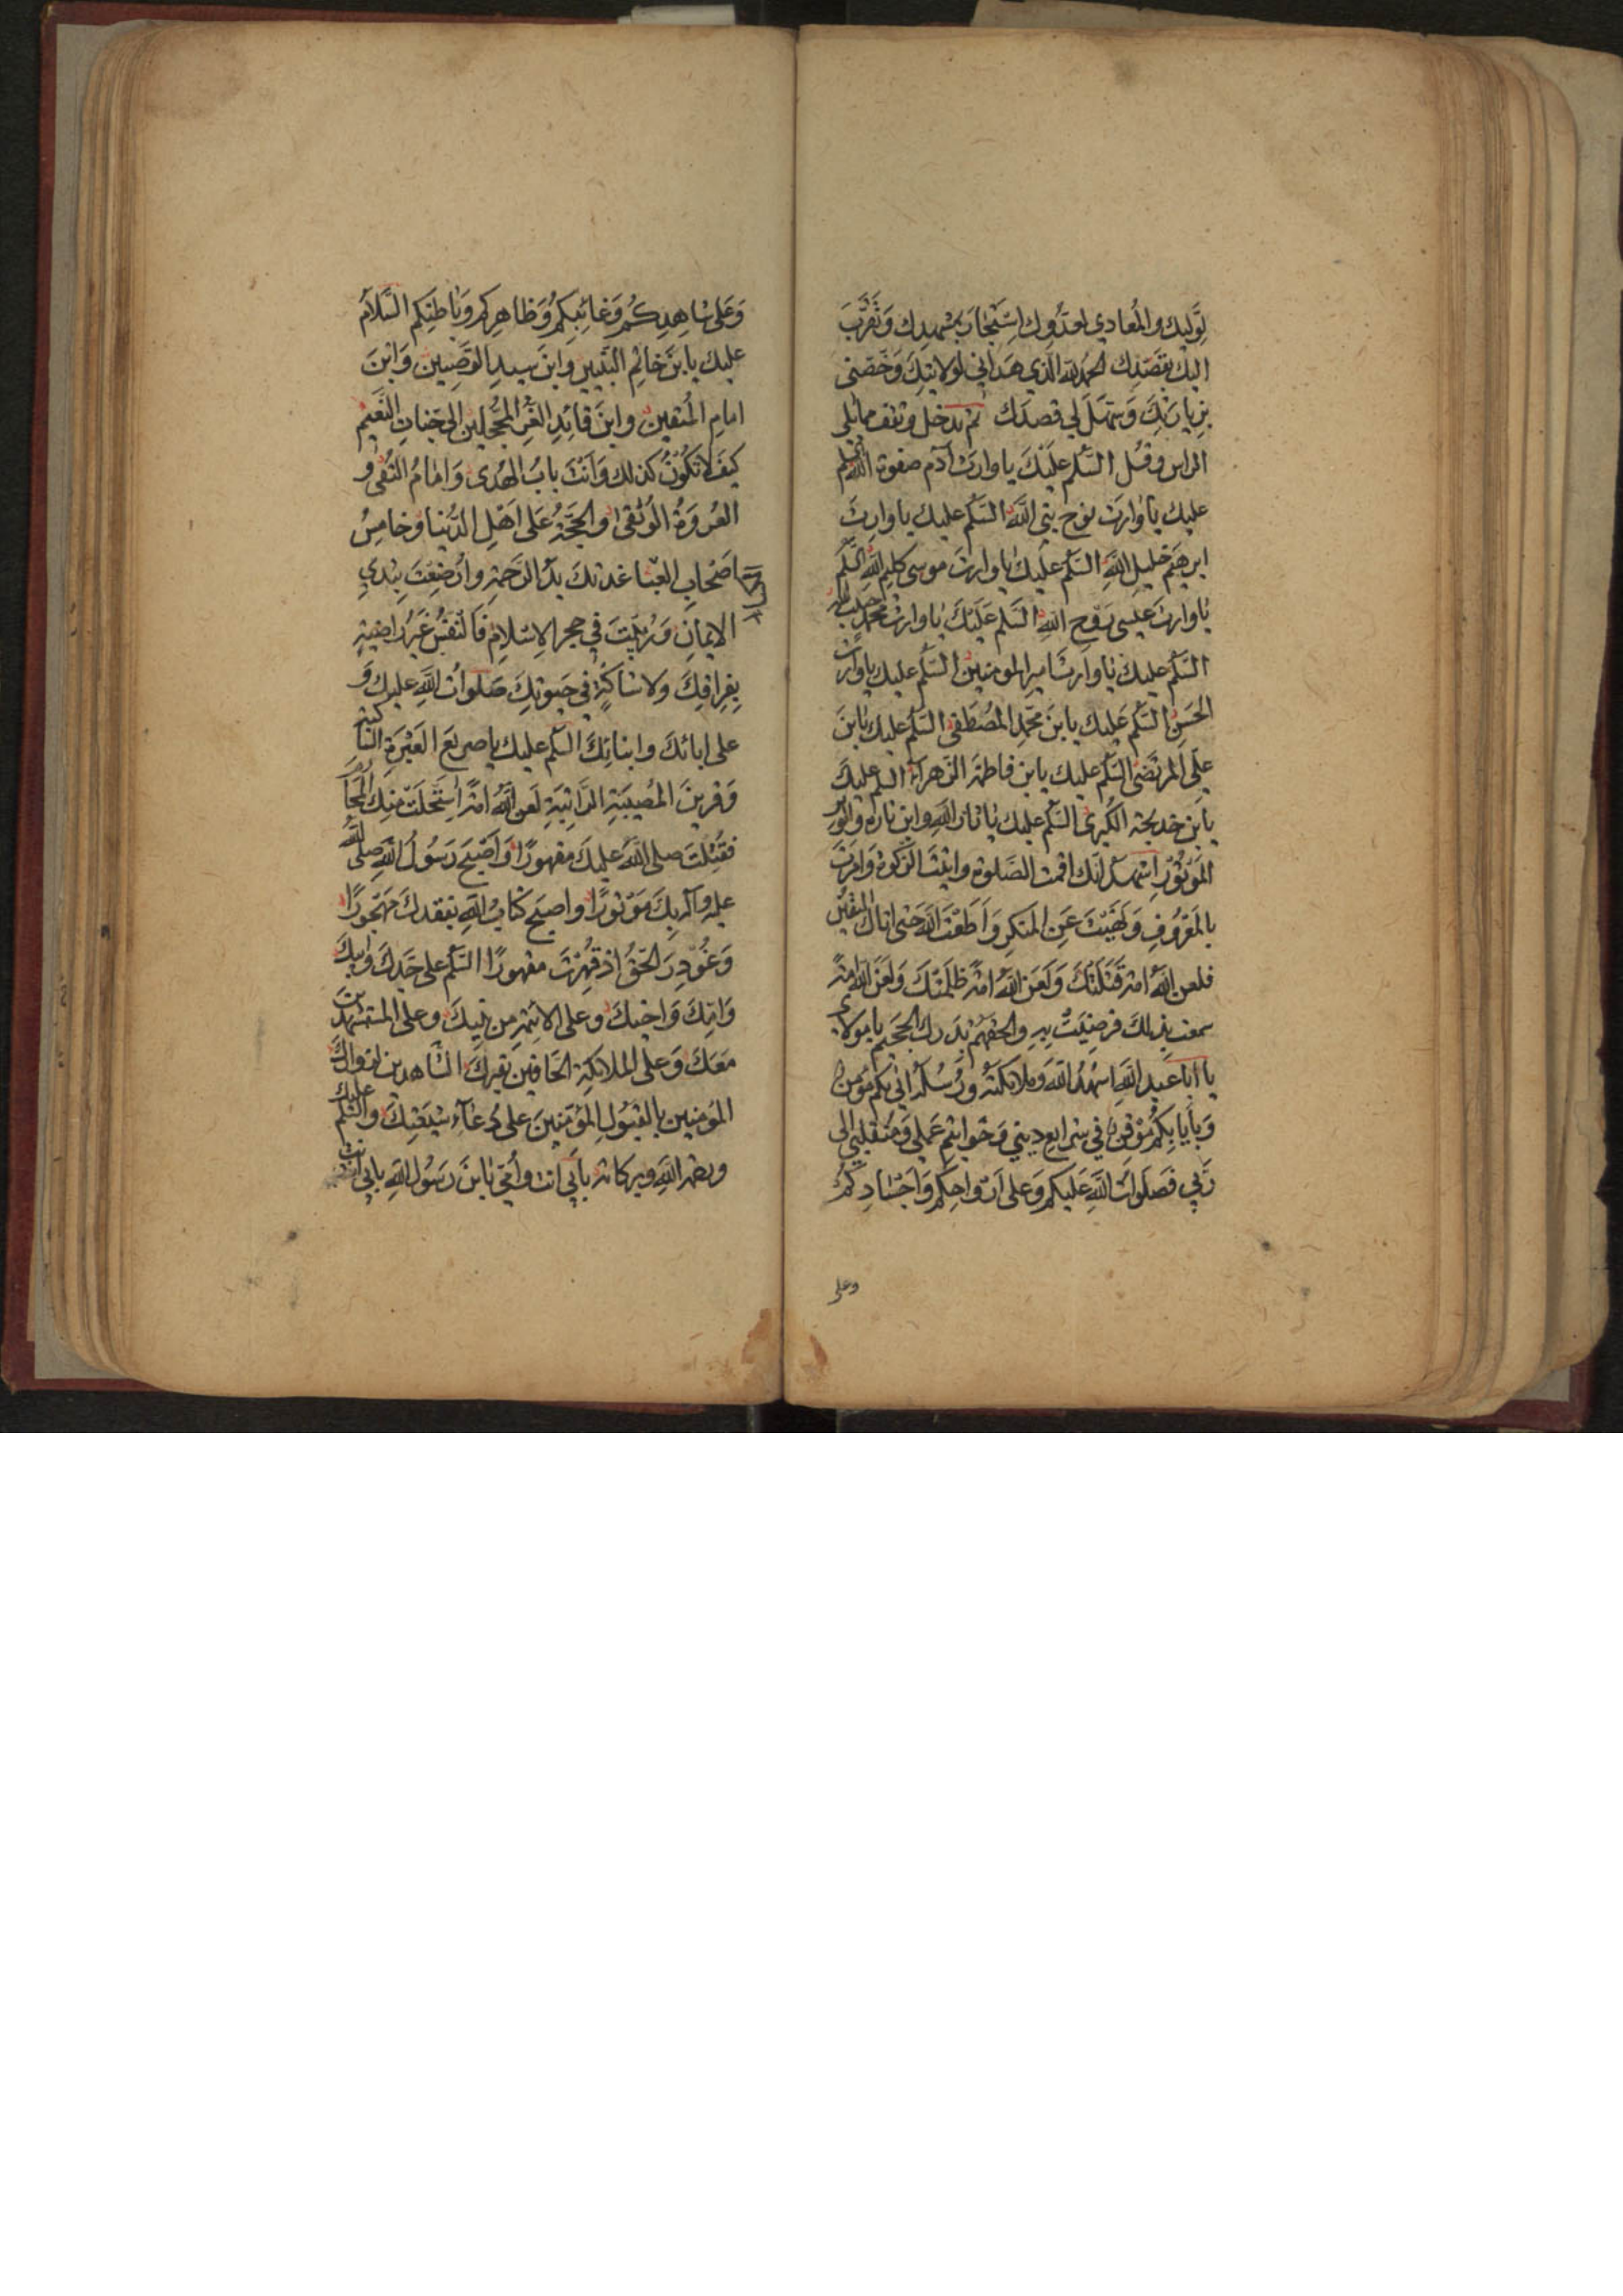 لِوَلِيِّكَ والمُعادِي لعَدُوِّكَ اِسْتَجارَ بِمَشْهَدِك وَتَقَرَّبَ
اليك بقَصْدِك الحمد لله الَّذي هَدَاني لِولايتِكَ وَخَصَّني
بِزِيارَتِكَ وَسَهَّلَ لي قصدَك ثم تدخل وتقف مما يلي
الراس وقُل السَّلم عَلَيْكَ يا وارث آدم صفوة الله السلم
عليك يا وَارِثَ نوح نبي اللَّه السَّلم عليك يا وارِثَ
ابرهيمَ خليلِ اللَّهِ السَّلم عَلَيكَ يا وارثَ موسى كليم اللَّهِ السَّلم
يا وارث عيسى رَوْحِ اللَّهِ السَّلم عَلَيْكَ يا وارث محمد حبيب الله
السَّلم عليك يا وارث امير المومنين السَّلم عليك يا وارث
الحَسَنِ السَّلم عَليك يابنَ محمّدِ المُصْطَفى السَّلم عليك يابنَ
علي المرتَضى السَّلم عليك يابن فاطمة الزهراء السلم عليكَ
يابن خديجة الكُبرى السَّلم عليك يا ثار اللَّهِ وابن ثارِهِ والوِتر
المَوْتُورُ اشهد انك اقمت الصَّلوة واتيْتَ الزكوة وَامَرْتَ
بالمَعْرُوفِ وَنَهَيْتَ عَنِ المنكر وَاَطَعْتَ اللَّهَ حتى اتاك اليقين
فلعن اللَّهُ امة قَتَلَتْكَ وَلَعَنَ اللَّهُ امةً ظَلَمَتْكَ وَلَعَنَ اللَّه امةً
سمعت بِذلِكَ فرضِيَتْ بِهِ والحقهم بدَرك الجَحيم يا مولاي
يا ابا عبد اللَّهِ اشهد اللَّهَ وملائكته ورُسُلَه اني بكم مُؤمن
وَبِاِيابِكُمْ مُوْقِن في شرايع ديني وَخَواتيم عَمَلي وَمُنقَلَبي الى
رَبّي فصَلَواتُ اللَّهِ عَلَيكم وَعلى اَرْواحِكم وَاَجْسَادِكُمْ
وعلى
وَعَلى شاهِدِكُم وَغائِبِكُمْ وَظاهِرِكم وَباطِنِكم السَّلامُ
عليك يابنَ خاتم النَّبيين وابنَ سيدِ الوَصيين وَابْنَ
امامِ المُتقين وابنَ قائِدِ الغُرِّ المُحجَّلين الى جَنّاتِ النَّعيم
كيفَ لا تكُونُ كذلك وَاَنْتَ بابُ الهُدى وَامامُ التُّقى و
العُروَةُ الوُثقى والحجَّةُ عَلى اَهْلِ الدُّنيا وخامِسُ
اصْحابِ العَبا غذتكَ يدُ الرَّحمَةِ وارضعْتَ بِثدي
الايمانِ وَرُبِّيتَ في حجر الاِسلامِ فَالنَّفْسُ غَيْرُ راضيةٍ
بِفِراقِكَ ولا شاكةٍ في حَيوتِكَ صَلَواتُ اللَّهِ عليك وَ
على ابائكَ وابنائِكَ السَّلم عليك يا صريع العَبْرَةِ الساكبة
وَقرينَ المُصيبَةِ الراتِبَةِ لَعَن اللَّهُ امَّةً اِسْتَحَلَّتْ مِنكَ المَحارم
فقُتِلْتَ صلى اللَّه عليك مقهورًا وَاَصْبَحَ رَسُولُ اللَّهِ صلى الله
عليه وآله بكَ مَوْتورًا واصبح كتابُ اللَّهِ بفقدك مَهجُورًا
وَغُودِرَ الحَقُّ اذ قُهِرْتَ مقهورًا السَّلم على جَدك وَابيكَ
وَامِّكَ وَاخيكَ وعلى الائمّةِ من بَنيكَ وعلى المستشهدين
مَعَكَ وَعلى الملائكَةِ الحَافّين بقبركَ الشاهدين لزوارك
المؤمنين بالقَبُولِ المُؤَمِّنينَ على دُعاءِ شيعَتِكَ والسَّلم عليك
ورحمة اللَّهِ وبركاته بِاَبي انت وأمّي يابنَ رَسُول اللَّهِ بابي انت